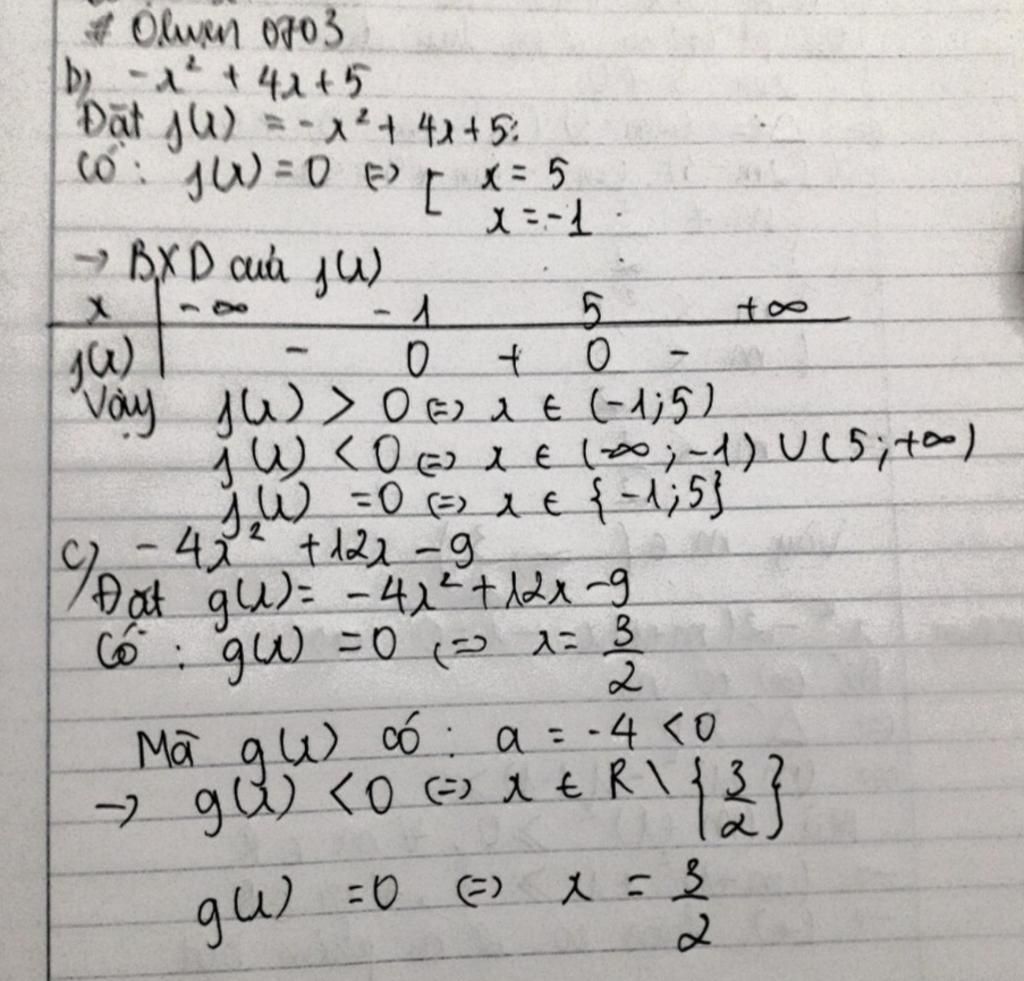 # Olwen 0703
b) -x² + 4x + 5
Đặt f(x) = -x² + 4x + 5:
Có: f(x) = 0 (=) [ x = 5
x = -1
→ BXD của f(x)
x | -∞ -1 5 +∞
f(x) | - 0 + 0 -
Vậy f(x) > 0 (=) x ∈ (-1;5)
f(x) < 0 (=) x ∈ (-∞;-1) ∪ (5;+∞)
f(x) = 0 (=) x ∈ {-1;5}
c) -4x² + 12x - 9
Đặt g(x) = -4x² + 12x - 9
Có: g(x) = 0 (=) x = 3/2
Mà g(x) có: a = -4 < 0
→ g(x) < 0 (=) x ∈ R \ {3/2}
g(x) = 0 (=) x = 3/2